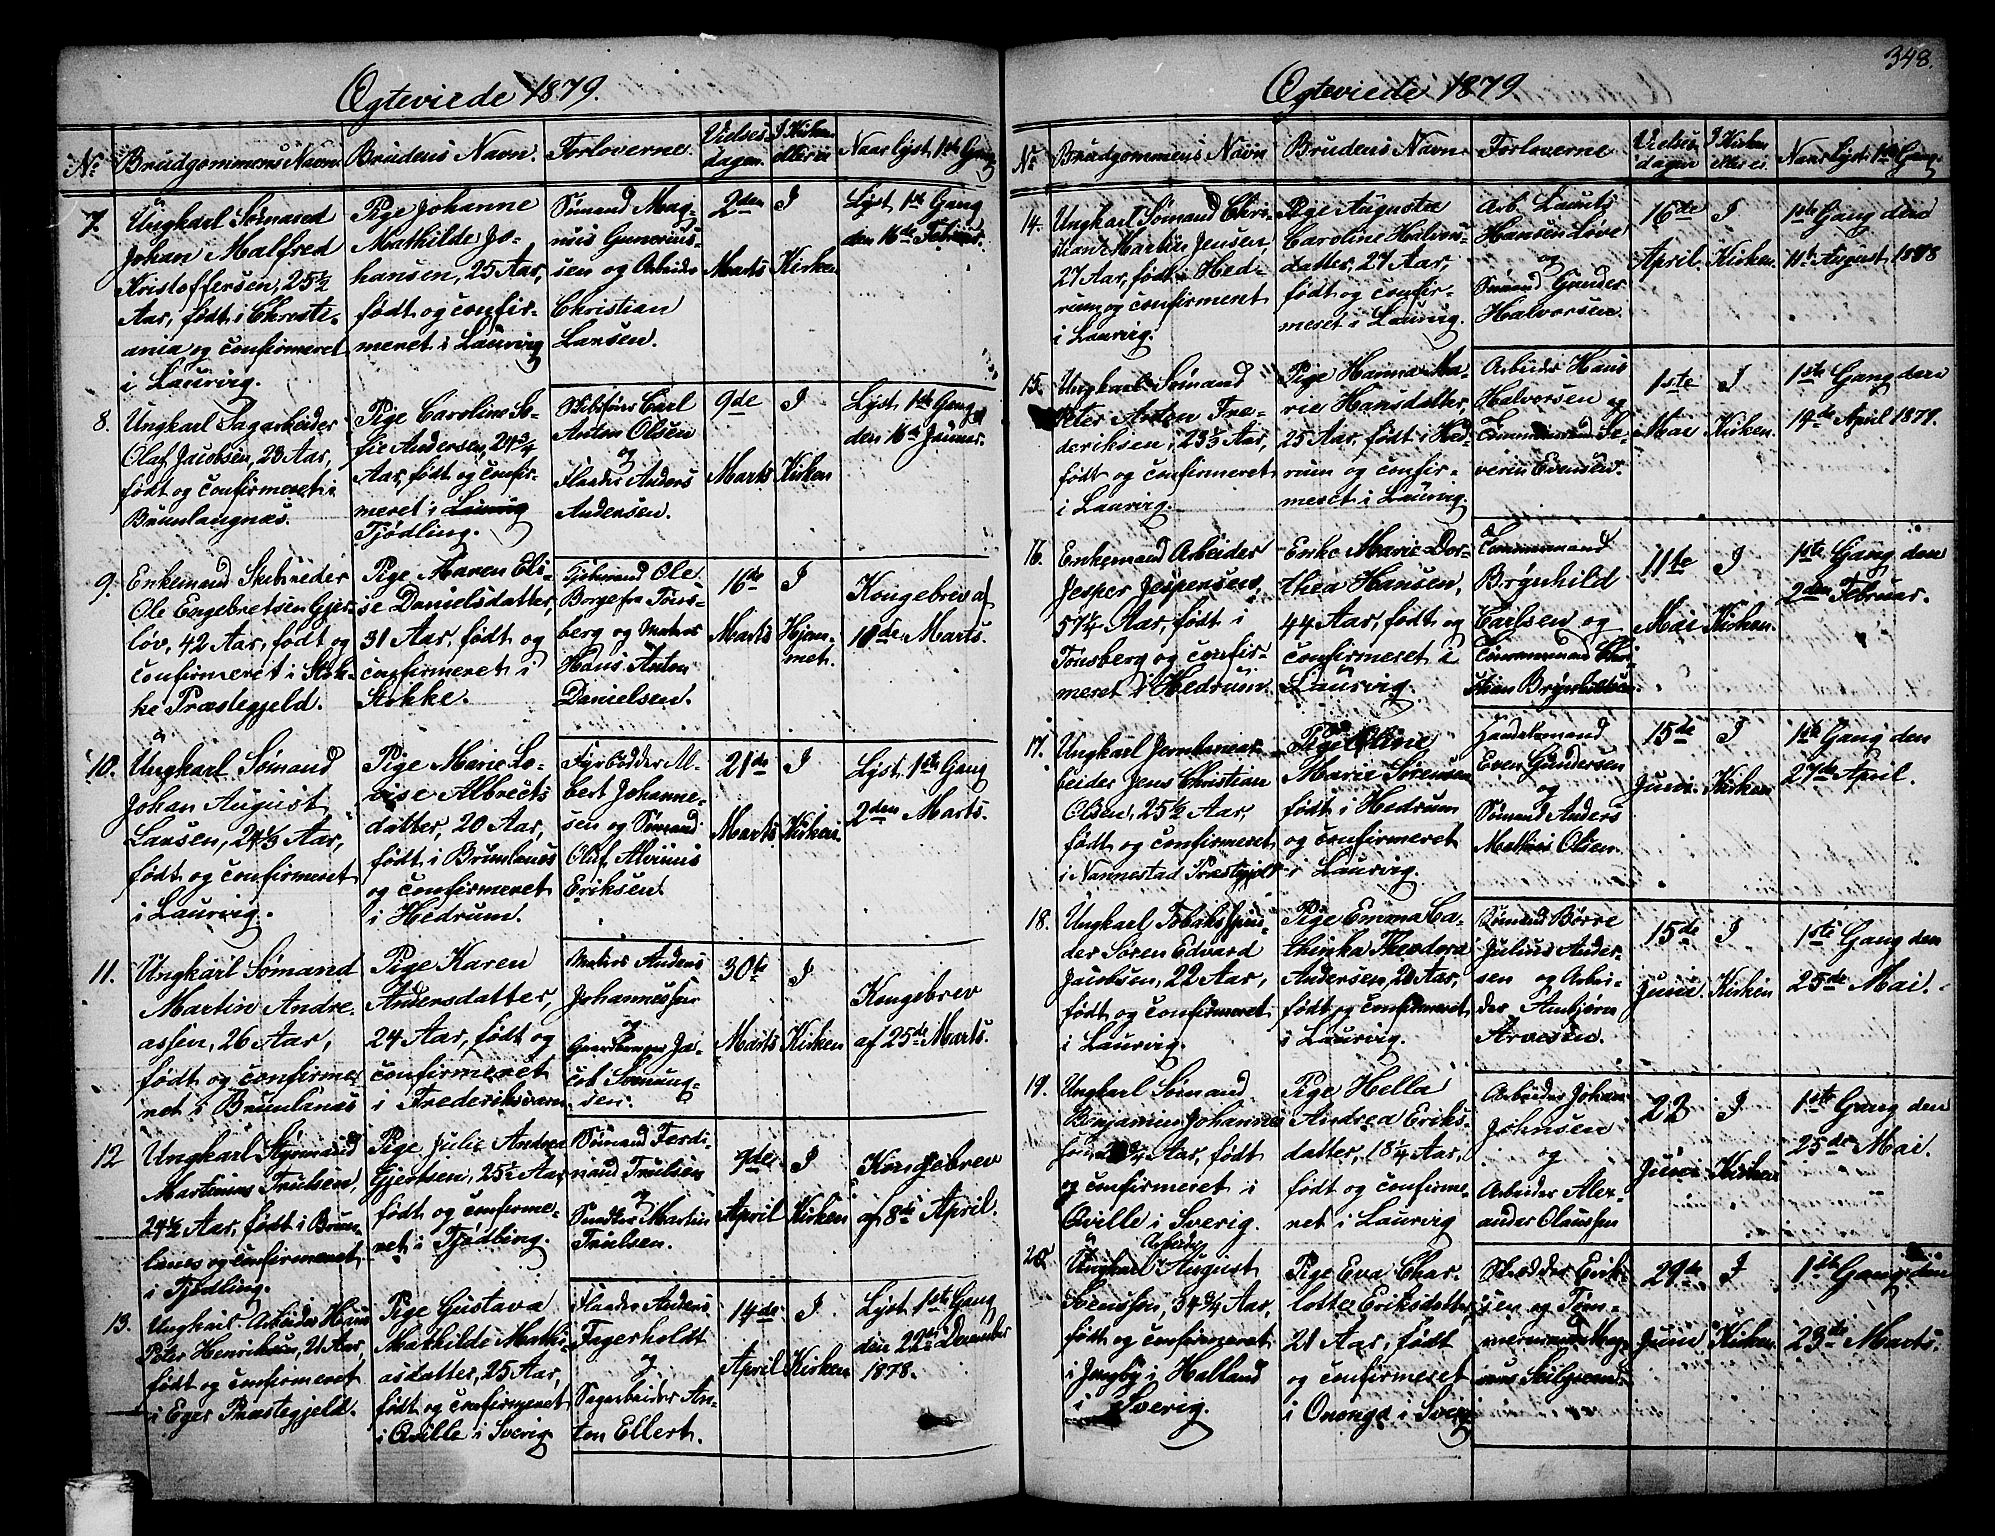 348.
Ægteviede 1879.
No
Brudgommens Navn
Brudens Navn.
Forloverne.
Vielses
dagen
I Kirken
eller ei
Naar lyst 1ste Gang
7.
Ungkarl Sømand
Johan Malfred
Kristoffersen, 25½
Aar, født i Christi-
ania og confirmeret
i Laurvig.
Pige Johanne
Mathilde Jo-
hansen, 25 Aar,
født og confir-
meret i Laurvig
Sømand Mag-
nus Gunerius-
sen og Arbeider
Christian
Larsen.
2den
Marts
I
Kirken
Lyst 1ste Gang
den 16de Februar.
8.
Ungkarl Sagarbeider
Olaf Jacobsen, 23 Aar,
født og confirmeret i
Brunlangnæs.
Pige Caroline So-
fie Andersen, 24¾
Aar, født og confir-
meret i Laurvig
Tjødling.
Carl
Anton Olsen
og
Flaader Anders
Andersen.
9de
Marts
I
Kirken
Lyst 1ste Gang
den 16de Januar.
9.
Enkemand
Ole Engebretsen Gjer-
løv, 42 Aar, født og
confirmeret i Stok-
ke Præstegjeld.
Pige Maren Eli-
se Danielsdatter,
31 Aar, født og
confirmeret i
Stokke.
Ole
Borge fra Tøns-
berg og Matros
Hans Anton
Danielsen.
16de
Marts
I
Hjem-
met.
Kongebrev af
10de Marts.
10.
Ungkarl Sømand
Johan August
Larsen, 24⅓ Aar,
født og confirmeret
i Laurvig.
Pige Marie Lo-
vise Albrects
datter, 20 Aar,
født i Brunlanæs
og confirmeret
i Hedrum.
Fyrbødder Al-
bert Johanne-
sen og Sømand
Olaf Alvinus
Eriksen.
21de
Marts
I
Kirken
Lyst 1ste Gang
2den Marts.
11.
Ungkarl Sømand
Martin Andre-
assen, 26 Aar,
født og confirme-
ret i Brunlanæs
Pige Karen
Andersdatter,
24 Aar, født og
confirmeret
i Frederiksværn
Matros Anders
Johannessen
og
Gaardmand Ja-
cob
sen.
30te
Marts
I
Kirken
Kongebrev
af 25de Marts.
12
Ungkarl Styrmand
Martinius Trulsen,
24½ Aar, født i Brun-
lanes og confirmeret
i Tjødling.
Pige Julie Andrea
Gjertsen, 25½ Aar,
født og confirme-
ret i Tjødling.
Sømand Ferdi-
nand Trulsen
og
Martin
Trulsen.
9de
April
I
Kirken
Kongebrev
af 8de April.
13.
Ungkarl Arbeider Hans
Peter Henriksen, 21 Aar,
født og confirmeret
i Eger Præstegjeld.
Pige Gustava
Mathilde Mathi-
asdatter, 25 Aar,
født og confirmeret
i Qville i Sverig.
Flaader Anders
Fagerholdt
og
Sagarbeider An-
ton Ellert.
14de
April
I
Kirken
Lyst 1ste Gang
den 22de December
1878.
Ægteviede 1879
No
Brudgommens Navn
Brudens Navn
Forloverne
Vielses
dagen
I Kirken
eller ei.
Naar lyst 1ste Gang.
14.
Ungkarl Sømand Chri-
stian Martin Jensen,
27 Aar, født i Hed-
rum, og confirmeret
i Laurvig.
Pige Augusta
Caroline Halvors-
datter, 27 Aar,
født og confir-
meret i Laurvig.
Arb. Lauritz
Hansen Løve
og
Sømand Gunder
Halvorsen.
16de
April.
I
Kirken.
1ste Gang den
11te August, 1878
15.
Ungkarl Sømand
Peter Anton Fre-
deriksen, 23½ Aar,
født og confirmeret
i Laurvig.
Pige Hanna Ma-
rie Hansdatter,
25 Aar, født i Hed-
rum og confir-
meret i Laurvig.
Arbeider Hans
Halvorsen og
Tømmermand Se-
verin Evensen.
1ste
Mai
I
Kirken.
1ste Gang den
14de April 1879.
16.
Enkemand Arbeider
Jesper Jespersen,
57¼ Aar, født i
Tønsberg og confir-
meret i Hedrum.
Enke Marie Dor-
thea Hansen,
44 Aar, født og
confirmeret i
Laurvig.
Tømmermand
Brynhild
Carlsen og
Tømmermand Chri-
stian Brynhildsen.
11te
Mai
I
Kirken.
1ste Gang den
2den Februar.
17.
Ungkarl Jernbanear-
beider Jens Christian
Olsen, 25½ Aar,
født og confirmeret
i Nannestad Præstegjeld
Pige Oline
Marie Sørensen
født i Hedrum
og confirmeret
i Laurvig.
Handelsmand
Even Gundersen
og
Sømand Anders
Mathis Olsen.
15de
Juni.
I
Kirken
1ste Gang den
27de April.
18.
Ungkarl Tobaksspin-
der Søren Edvard
Jacobsen, 22 Aar,
født og confirmeret
i Laurvig.
Pige Emma Ca-
thinka Theodora
Andersen, 20 Aar,
født og confirmeret
i Laurvig.
Sømand Børre
Julius Ander-
sen og Arbei-
der Anbjørn
Arvesen.
15de
Juni.
I
Kirken
1ste Gang den
25de Mai.
19.
Ungkarl Sømand
Benjamin Johannes
Aar, født
og confirmeret i
Qville i Sverig.
Pige Hella
Andrea Eriks-
datter, 18¼ Aar,
født og confirme-
ret i Laurvig
Arbeider Johan
Johnsen
og
Arbeider Alex-
ander Olaussen
22
Juni
I
Kirken
1ste Gang den
25de Mai.
20.
Arbeider
Ungkarl August
Svensson, 34¾ Aar,
født og confirmeret
i Jngby i Halland
i Sverig.
Pige Eva Char-
lotte Eriksdatter
21 Aar, født
og confirmeret
i Ononga i Sverig
Skrædder Erik-
sen og Tøm-
mermand Mag-
nus
29te
Juni
I
Kirken.
1ste Gang den
23de Marts.